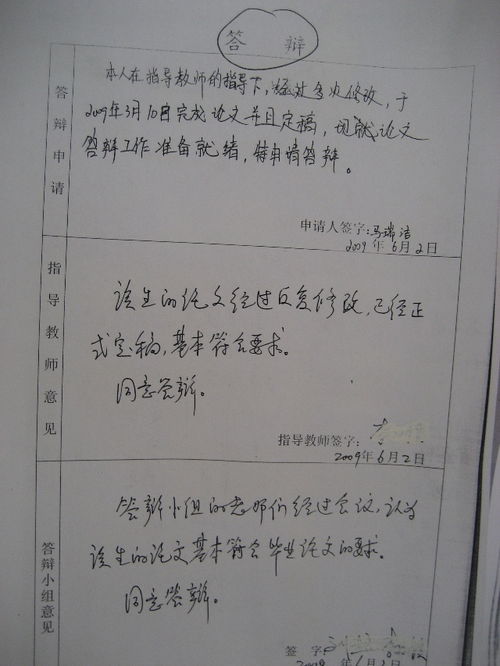 答 辩
答辩申请
本人在指导教师的指导下，经过多次修改，于
2009年3月10日完成论文并且定稿，现就论文
答辩工作准备就绪，特申请答辩。
申请人签字：马瑞洁
2009年6月2日
指导教师意见
该生的论文经过反复修改，已经正
式定稿，基本符合要求。
同意答辩。
指导教师签字：
2009年6月2日
答辩小组意见
答辩小组的老师们经过会议，认为
该生的论文基本符合毕业论文的要求。
同意答辩。
签 字：
2009年6月2日